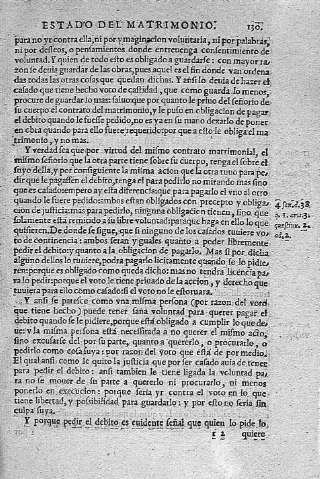 ESTADO DEL MATRIMONIO. 130.
para no yr contra ella, ni por ymaginacion voluntaria, ni por palabras,
ni por desseos, o pensamientos donde entreuenga consentimiento de
voluntad. Y quien de todo esto es obligado a guardarse: con mayor ra
zon se deuia guardar de las obras, pues aquel es el fin donde van ordena
das todas las otras cosas que quedan dichas. Y ansi lo deuia de hazer el
casado que tiene hecho voto de castidad, que como guarda lo menos,
procure de guardar lo mas: saluo que por quanto le priuo del señorio de
su cuerpo el contrato del matrimonio, y le puso en obligacion de pagar
el debito quando le fuesse pedido, no es ya en su mano dexarlo de poner
en obra quando para ello fuere requerido: por que a esto le obliga el ma
trimonio, y no mas.
Y verdad sea que por virtud del mismo contrato matrimonial, el
mismo señorio que la otra parte tiene sobre su cuerpo, tenga el sobre el
suyo della, y por configuiente la misma accion que la otra tuuo para pe
dir que le pagassen el debito, tenga el para pedirlo no mirando mas sino
que es casado: empero ay esta diferencia: que para pagarlo el vno al otro
quando le fuere pedido: ambos estan obligados con precepto y obliga
cion de justicia: mas para pedirlo, ninguna obligacion tienen, sino que
solamente esta remitido a su libre voluntad: para que haga en ello lo que
quisieren. De donde se sigue, que si ninguno de los casados tuuiere vo
to de continencia: ambos seran yguales quanto a poder libremente
pedir el debito: y quanto a la obligacion de pagarlo. Mas si por dicha
alguno dellos lo tuuiere, podra pagarlo licitamente quando se le pidie
ren: porque es obligado como queda dicho: mas no tendra licencia pa
ra lo pedir: porque el voto le tiene priuado de la accion, y derecho que
tuuiera para ello como casado si el voto no le estoruara.
Y ansi se parisce como vna misma persona (por razon del voto
que tiene hecho) puede tener sana voluntad para querer pagar el
debito quando se le pidiere, porque esta obligado a cumplir lo que de
ue: y la misma persona esta necessitada a no querer el mismo acto,
sino excusarse del por su parte, quanto a quererlo, o procurarlo, o
pedirlo como cosa suya: por razon del voto que esta de por medio.
El qual ansi como le quito la justicia que por ser casado auia de tener
para pedir el debito: ansi tambien le tiene ligada la voluntad pa
ra no se mouer de su parte a quererlo ni procurarlo, ni menos
ponerlo en execucion: porque seria yr contra el voto en lo que
tiene libertad, y possibilidad para guardarlo: y por esto no seria sin
culpa suya.
Y porque pedir el debito es euidente señal que quien lo pide lo,
r 2 quiere